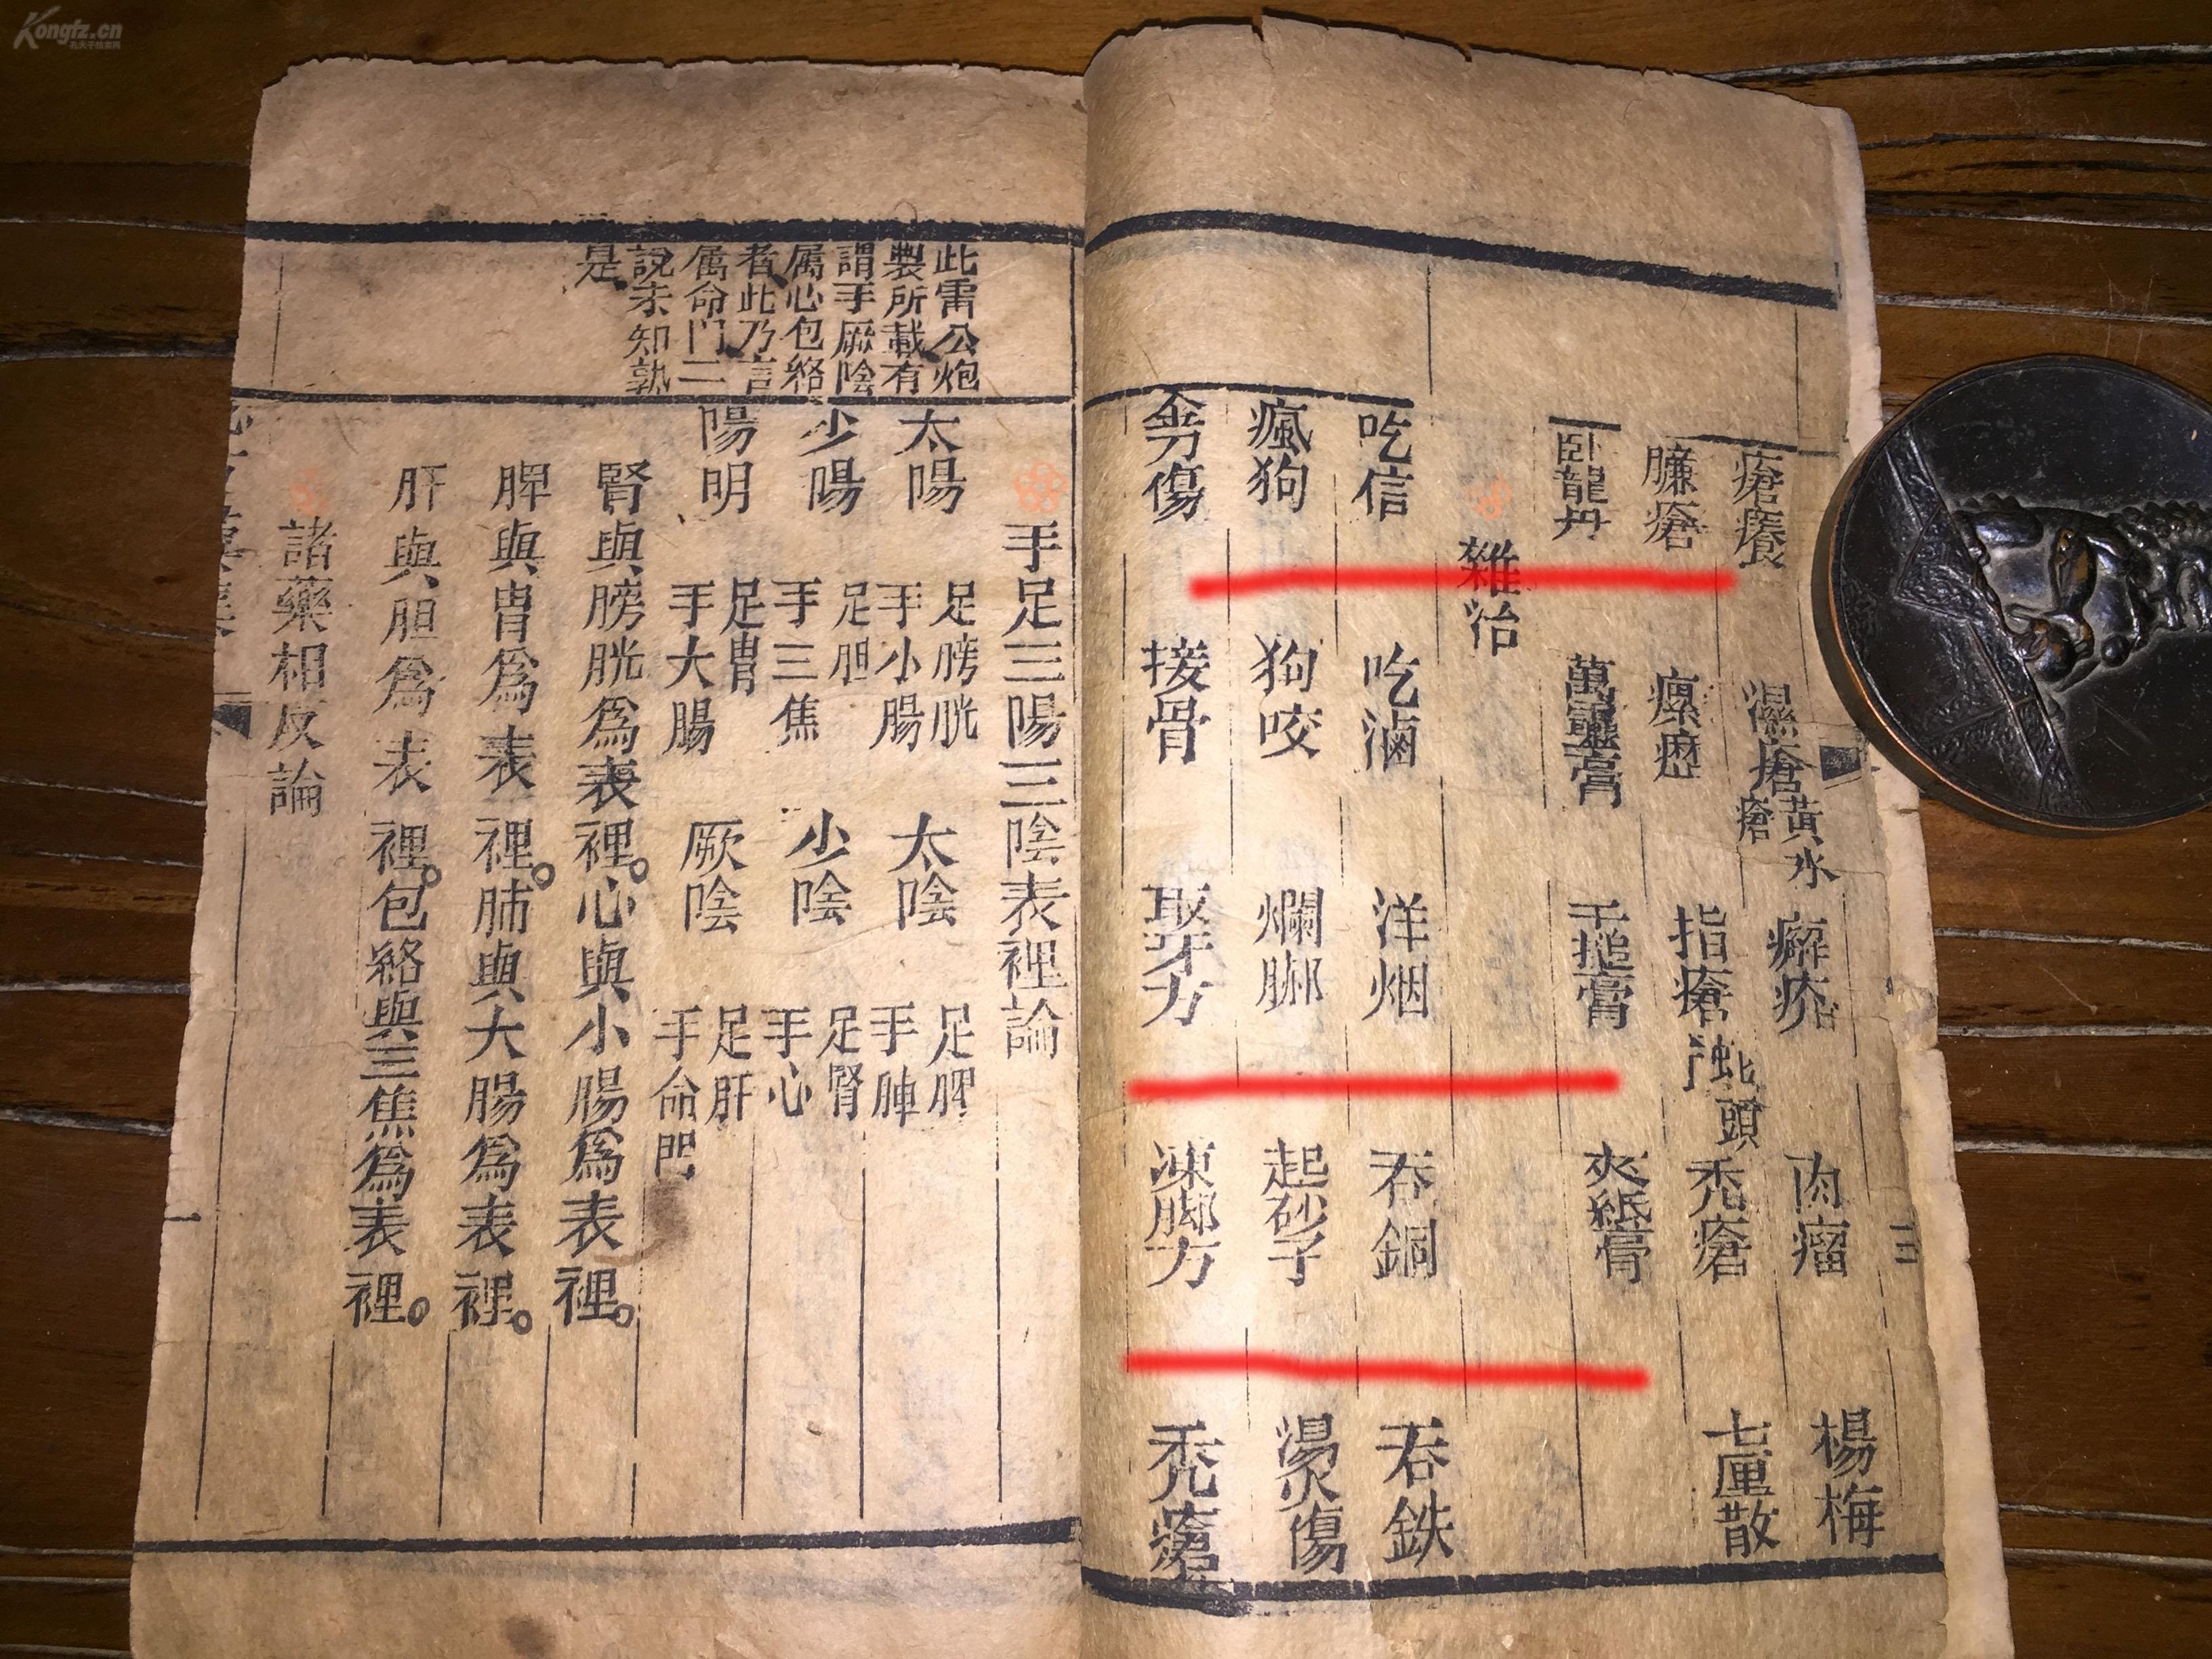 瘡癢 濕瘡 黃水瘡 癬疥 肉瘤 楊梅
臁瘡 瘰癧 指瘡 蛇頭 禿瘡 七厘散
卧龍丹 萬靈膏 千搥膏 夾紙膏
雜治
吃信 吃滷 洋烟 吞銅 吞鉄
瘋狗 狗咬 爛脚 起砂子 湯火傷
金刃傷 接骨 取牙方 凍脚方 禿瘡
三
手足三陽三陰表裡論
此雷公炮
製所載有
謂手厥陰
属心包絡
者此乃言
属命門二
說未知孰
是
太陽 足膀胱 手小腸 太陰 足脾 手肺
少陽 足胆 手三焦 少陰 足腎 手心
陽明 足胃 手大腸 厥陰 足肝 手命門
腎與膀胱為表裡。心與小腸為表裡。
脾與胃為表裡。肺與大腸為表裡。
肝與胆為表裡。包絡與三焦為表裡。
諸藥相反論
一
Kongfz.cn